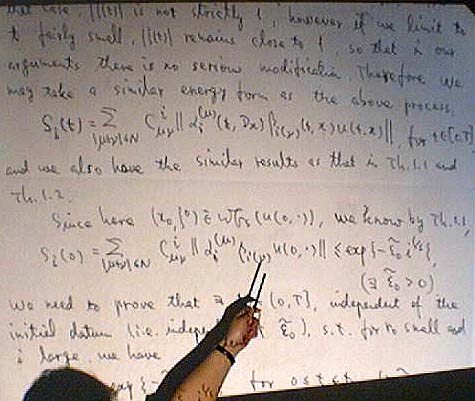 that case, ||(t)| is not strictly 1, however if we limit to
t fairly small, ||(t)| remains close to 1, so that in our
arguments there is no serious modification. Therefore we
may take a similar energy form as the above process.
S_i(t) = Σ_{|μ+ν|≤N} C^i_{μν} || α_i^{(μ)}(t, D_x) β_{i(ν)}(t,x) u(t,x) ||, for t∈[0,T]
and we also have the similar results as that in Th.1.1 and
Th.1.2.
Since here (x_0, ξ^0) ∉ WF (u(0,·)), we know by Th.1.1,
S_i(0) = Σ_{|μ+ν|≤N} C^i_{μν} || α_i^{(μ)} β_{i(ν)} u(0,·) || ≤ exp{-ε̃_0 i^{1/s}},
(∃ ε̃_0 > 0)
We need to prove that ∃ (0,T], independent of the
initial datum (i.e. ε̃_0), s.t. for r_0 small and
i large, we have
for 0≤t≤